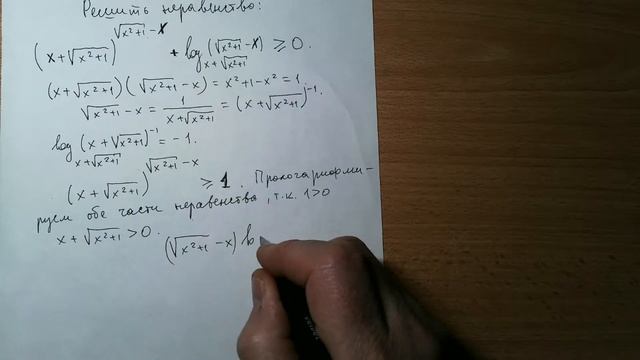 Решить неравенство:
(x+√(x²+1))^(√(x²+1)-x) + log_(x+√(x²+1)) (√(x²+1)-x) ⩾ 0.
(x+√(x²+1))(√(x²+1)-x) = x²+1-x² = 1.
√(x²+1)-x = 1/(x+√(x²+1)) = (x+√(x²+1))^(-1).
log_(x+√(x²+1)) (x+√(x²+1))^(-1) = -1.
(x+√(x²+1))^(√(x²+1)-x) ⩾ 1. Прологарифми-
руем обе части неравенства, т.к. 1>0
x+√(x²+1) > 0. (√(x²+1)-x) lo